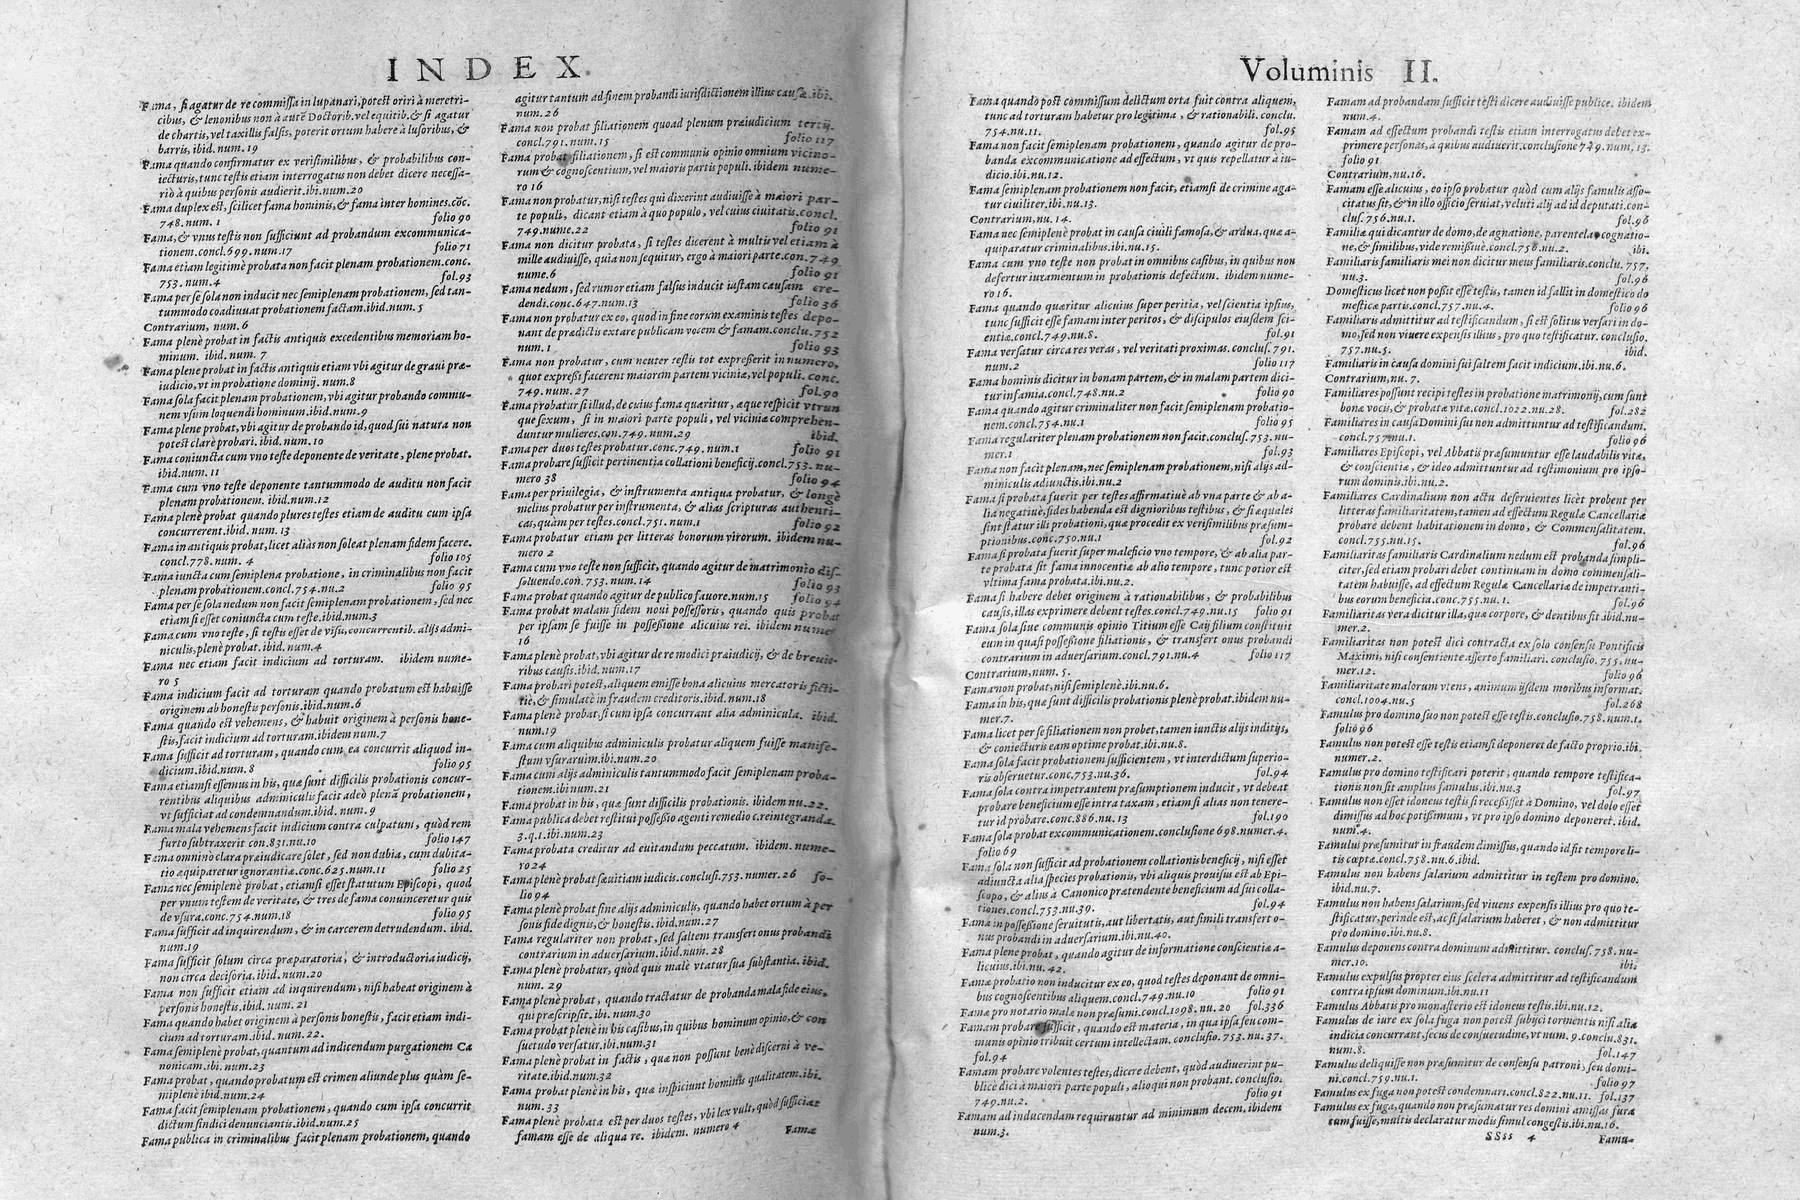 INDEX.
Fama, si agatur de re commissa in lupanari, potest oriri à meretri-
cibus, & lenonibus non à autē Doctorib. vel equitib. & si agatur
de chartis, vel taxillis falsis, poterit ortum habere à lusoribus, &
barris, ibid. num. 19
Fama quando confirmatur ex verisimilibus, & probabilibus con-
iecturis, tunc testis etiam interrogatus non debet dicere necessa-
riò à quibus personis audierit. ibi. num. 20
Fama duplex est, scilicet fama hominis, & fama inter homines. cōc.
748. num. 1 folio 90
Fama, & vnus testis non sufficiunt ad probandum excommunica-
tionem. concl. 699. num. 17 folio 71
Fama etiam legitimè probata non facit plenam probationem. conc.
753. num. 4 fol. 93
Fama per se sola non inducit nec semiplenam probationem, sed tan-
tummodo coadiuuat probationem factam. ibid. num. 5
Contrarium, num. 6
Fama plenè probat in factis antiquis excedentibus memoriam ho-
minum. ibid. num. 7
Fama plene probat in factis antiquis etiam vbi agitur de graui præ-
iudicio, vt in probatione dominij. num. 8
Fama sola facit plenam probationem, vbi agitur probando commu-
nem vsum loquendi hominum. ibid. num. 9
Fama plene probat, vbi agitur de probando id, quod sui natura non
potest clarè probari. ibid. num. 10
Fama coniuncta cum vno teste deponente de veritate, plene probat.
ibid. num. 11
Fama cum vno teste deponente tantummodo de auditu non facit
plenam probationem. ibid. num. 12
Fama plenè probat quando plures testes etiam de auditu cum ipsa
concurrerent. ibid. num. 13
Fama in antiquis probat, licet aliàs non soleat plenam fidem facere.
concl. 778. num. 4 folio 105
Fama iuncta cum semiplena probatione, in criminalibus non facit
plenam probationem. concl. 754. nu. 2 folio 95
Fama per se sola nedum non facit semiplenam probationem, sed nec
etiam si esset coniuncta cum teste. ibid. num. 3
Fama cum vno teste, si testis esset de visu, concurrentib. alijs admi-
niculis, plenè probat. ibid. num. 4
Fama nec etiam facit indicium ad torturam. ibidem nume-
ro 5
Fama indicium facit ad torturam quando probatum est habuisse
originem ab honestis personis. ibid. num. 6
Fama quando est vehemens, & habuit originem à personis hone-
stis, facit indicium ad torturam. ibidem num. 7
Fama sufficit ad torturam, quando cum ea concurrit aliquod in-
dicium. ibid. num. 8 folio 95
Fama etiamsi essemus in his, quæ sunt difficilis probationis concur-
rentibus aliquibus adminiculis facit adeò plenā probationem,
vt sufficiat ad condemnandum. ibid. num. 9
Fama mala vehemens facit indicium contra culpatum, quòd rem
furto subtraxerit con. 831. nu. 10 folio 147
Fama omninò clara præiudicare solet, sed non dubia, cum dubita-
tio æquiparetur ignorantiæ. conc. 625. num. 11 folio 25
Fama nec semiplenè probat, etiamsi esset statutum Episcopi, quod
per vnum testem de veritate, & tres de fama conuinceretur quis
de vsura. conc. 754. num. 18 folio 95
Fama sufficit ad inquirendum, & in carcerem detrudendum. ibid.
num. 19
Fama sufficit solum circa præparatoria, & introductoria iudicij,
non circa decisoria. ibid. num. 20
Fama non sufficit etiam ad inquirendum, nisi habeat originem à
personis honestis. ibid. num. 21
Fama quando habet originem à personis honestis, facit etiam indi-
cium ad torturam. ibid. num. 22.
Fama semiplenè probat, quantum ad indicendum purgationem Ca
nonicam. ibi. num. 23
Fama probat, quando probatum est crimen aliunde plus quàm se-
miplenè ibid. num. 24
Fama facit semiplenam probationem, quando cum ipsa concurrit
dictum sindici denunciantis. ibid. num. 25
Fama publica in criminalibus facit plenam probationem, quando
agitur tantum ad finem probandi iurisdictionem illius causæ ibi.
num. 26
Fama non probat filiationem quoad plenum præiudicium tertij.
concl. 791. num. 15 folio 117
Fama probat filiationem, si est communis opinio omnium vicino-
rum & cognoscentium, vel maioris partis populi. ibidem nume-
ro 16
Fama non probatur, nisi testes qui dixerint audiuisse à maiori par-
te populi, dicant etiam à quo populo, vel cuius ciuitatis. concl.
749. nume. 22 folio 91
Fama non dicitur probata, si testes dicerent à multis vel etiam à
mille audiuisse, quia non sequitur, ergo à maiori parte. con. 749
nume. 6 folio 91
Fama nedum, sed rumor etiam falsus inducit iustam causam cre-
dendi. conc. 647. num. 13 folio 36
Fama non probatur ex eo, quod in fine eorum examinis testes depo-
nant de prædictis extare publicam vocem & famam. conclu. 752
num. 1 folio 93
Fama non probatur, cum neuter testis tot expresserit in numero,
quot expressi facerent maiorem partem viciniæ, vel populi. conc.
749. num. 27 fol. 90
Fama probatur si illud, de cuius fama quæritur, æque respicit vtrun
que sexum, si in maiori parte populi, vel viciniæ comprehen-
duntur mulieres. con. 749. num. 29 ibid.
Fama per duos testes probatur. conc. 749. num. 1 folio 91
Fama probare sufficit pertinentia collationi beneficij. concl. 753. nu-
mero 38 folio 94
Fama per priuilegia, & instrumenta antiqua probatur, & longè
melius probatur per instrumenta, & alias scripturas authenti-
cas, quàm per testes. concl. 751. num. 1 folio 92
Fama probatur etiam per litteras bonorum virorum. ibidem nu-
mero 2
Fama cum vno teste non sufficit, quando agitur de matrimonio dis-
soluendo. con. 753. num. 14 folio 93
Fama probat quando agitur de publico fauore. num. 15 folio 94
Fama probat malam fidem noui possessoris, quando quis probat
per ipsam se fuisse in possessione alicuius rei. ibidem nume
16
Fama plenè probat, vbi agitur de re modici præiudicij, & de breuio-
ribus causis. ibid. num. 17
Fama probari potest, aliquem emisse bona alicuius mercatoris ficti-
tiè, & simulatè in fraudem creditoris. ibid. num. 18
Fama plenè probat, si cum ipsa concurrant alia adminicula. ibid.
num. 19
Fama cum aliquibus adminiculis probatur aliquem fuisse manife-
stum vsurarium. ibi. num. 20
Fama cum alijs adminiculis tantummodo facit semiplenam proba-
tionem ibi. num. 21
Fama probat in his, quæ sunt difficilis probationis. ibidem nu. 22.
Fama publica debet restitui possessio agenti remedio c. reintegranda.
3. q. 1. ibi. num. 23
Fama probata creditur ad euitandum peccatum. ibidem. nume-
ro 24
Fama plenè probat sæuitiam iudicis. conclusi. 753. numer. 26 fo-
lio 94
Fama plenè probat sine alijs adminiculis, quando habet ortum à per
sonis fide dignis, & honestis. ibid. num. 27
Fama regulariter non probat, sed saltem transfert onus probandi
contrarium in aduersarium. ibid. num. 28
Fama plenè probatur, quòd quis malè vtatur sua substantia. ibid.
num. 29
Fama plenè probat, quando tractatur de probanda mala fide eius,
qui præscripsit. ibi. num. 30
Fama probat plenè in his casibus, in quibus hominum opinio, & con
suetudo versatur. ibi. num. 31
Fama plenè probat in factis, quæ non possunt benè discerni à ve-
ritate. ibid. num. 32
Fama probat plenè in his, quæ inspiciunt hominis qualitatem. ibi.
num. 33
Fama plenè probata est per duos testes, vbi lex vult, quòd sufficiat
famam esse de aliqua re. ibidem. numero 4
Famæ
Voluminis II.
Fama quando post commissum delictum orta fuit contra aliquem,
tunc ad torturam habetur pro legitima, & rationabili. conclu.
754. nu. 11. fol. 95
Fama non facit semiplenam probationem, quando agitur de pro-
banda excommunicatione ad effectum, vt quis repellatur à iu-
dicio. ibi. nu. 12.
Fama semiplenam probationem non facit, etiamsi de crimine aga-
tur ciuiliter. ibi. nu. 13.
Contrarium, nu. 14.
Fama nec semiplenè probat in causa ciuili famosa, & ardua, quæ æ-
quiparatur criminalibus. ibi. nu. 15.
Fama cum vno teste non probat in omnibus casibus, in quibus non
defertur iuramentum in probationis defectum. ibidem nume-
ro 16.
Fama quando quæritur alicuius super peritia, vel scientia ipsius,
tunc sufficit esse famam inter peritos, & discipulos eiusdem sci-
entiæ. concl. 749. nu. 8. fol. 91
Fama versatur circa res veras, vel veritati proximas. conclus. 791.
num. 2 folio 117
Fama hominis dicitur in bonam partem, & in malam partem dici-
tur infamia. concl. 748. nu. 2 folio 90
Fama quando agitur criminaliter non facit semiplenam probatio-
nem. concl. 754. nu. 1 folio 95
Fama regulariter plenam probationem non facit. conclus. 753. nu-
mer. 1 fol. 93
Fama non facit plenam, nec semiplenam probationem, nisi alijs ad-
miniculis adiunctis. ibi. nu. 2
Fama si probata fuerit per testes affirmatiuè ab vna parte & ab a-
lia negatiuè, fides habenda est dignioribus testibus, & si æquales
sint statur illi probationi, quæ procedit ex verisimilibus præsum-
ptionibus. conc. 750. nu. 1 fol. 92
Fama si probata fuerit super maleficio vno tempore, & ab alia par-
te probata sit fama innocentiæ ab alio tempore, tunc potior est
vltima fama probata. ibi. nu. 2.
Fama si habere debet originem à rationabilibus, & probabilibus
causis, illas exprimere debent testes. concl. 749. nu. 15 folio 91
Fama sola siue communis opinio Titium esse Caij filium constituit
eum in quasi possessione filiationis, & transfert onus probandi
contrarium in aduersarium. concl. 791. nu. 4 folio 117
Contrarium, num. 5.
Fama non probat, nisi semiplenè. ibi. nu. 6.
Fama in his, quæ sunt difficilis probationis plenè probat. ibidem nu-
mer. 7.
Fama licet per se filiationem non probet, tamen iunctis alijs inditijs,
& coniecturis eam optime probat. ibi. nu. 8.
Fama sola facit probationem sufficientem, vt interdictum superio-
ris obseruetur. conc. 753. nu. 36. fol. 94
Fama sola contra impetrantem præsumptionem inducit, vt debeat
probare beneficium esse intra taxam, etiam si alias non tenere-
tur id probare. conc. 886. nu. 13 fol. 190
Fama sola probat excommunicationem. conclusione 698. numer. 4.
folio 69
Fama sola non sufficit ad probationem collationis beneficij, nisi esset
adiuncta alia species probationis, vbi aliquis prouisus est ab Epi-
scopo, & alius à Canonico prætendente beneficium ad sui colla-
tiones. concl. 753. nu. 39. fol. 94
Fama in possessione seruitutis, aut libertatis, aut simili transfert o-
nus probandi in aduersarium. ibi. nu. 40.
Fama plenè probat, quando agitur de informatione conscientiæ a-
licuius. ibi. nu. 42.
Famæ probatio non inducitur ex eo, quod testes deponant de omni-
bus cognoscentibus aliquem. concl. 749. nu. 10 folio 91
Famæ pro notario malæ non præsumi. concl. 1098. nu. 20 fol. 336
Famam probare sufficit, quando est materia, in qua ipsa seu com-
munis opinio tribuit certum intellectum. conclusio. 753. nu. 37.
fol. 94
Famam probare volentes testes, dicere debent, quòd audiuerint pu-
blicè dici à maiori parte populi, alioqui non probant. conclusio.
749. nu. 2. folio 91
Famam ad inducendam requiruntur ad minimum decem. ibidem
num. 3.
Famam ad probandam sufficit testi dicere audiuisse publice. ibidem
num. 4.
Famam ad effectum probandi testis etiam interrogatus debet ex-
primere personas, à quibus audiuerit. conclusione 749. num. 13.
folio 91
Contrarium, nu. 16.
Famam esse alicuius, eo ipso probatur quòd cum alijs famulis asso-
citatus sit, & in illo officio seruiat, veluti alij ad id deputati. con-
clus. 756. nu. 1. fol. 96
Familiæ qui dicantur de domo, de agnatione, parentela, cognatio-
ne, & similibus, vide remissiuè. concl. 758. nu. 2. ibi.
Familiaris familiaris mei non dicitur meus familiaris. conclu. 757.
nu. 3. fol. 96
Domesticus licet non possit esse testis, tamen id fallit in domestico do
mesticæ partis. concl. 757. nu. 4. folio 96
Familiaris admittitur ad testificandum, si est solitus versari in do-
mo, sed non viuere expensis illius, pro quo testificatur. conclusio.
757. nu. 5. ibid.
Familiaris in causa domini sui saltem facit indicium. ibi. nu. 6.
Contrarium, nu. 7.
Familiares possunt recipi testes in probatione matrimonij, cum sunt
bonæ vocis, & probatæ vitæ. concl. 1022. nu. 28. fol. 282
Familiares in causa Domini sui non admittuntur ad testificandum.
concl. 757. nu. 1. folio 96
Familiares Episcopi, vel Abbatis præsumuntur esse laudabilis vitæ,
& conscientiæ, & ideo admittuntur ad testimonium pro ipso-
rum dominis. ibi. nu. 2.
Familiares Cardinalium non actu deseruientes licèt probent per
litteras familiaritatem, tamen ad effectum Regulæ Cancellariæ
probare debent habitationem in domo, & Commensalitatem.
concl. 755. nu. 15. fol. 96
Familiaritas familiaris Cardinalium nedum est probanda simpli-
citer, sed etiam probari debet continuam in domo commensali-
tatem habuisse, ad effectum Regulæ Cancellariæ de impetranti-
bus eorum beneficia. conc. 755. nu. 1. fol. 96
Familiaritas vera dicitur illa, quæ corpore, & dentibus sit. ibid. nu-
mer. 2.
Familiaritas non potest dici contracta ex solo consensu Pontificis
Maximi, nisi consentiente asserto familiari. conclusio. 755. nu-
mer. 12. folio 96
Familiaritate malorum vtens, animum ijsdem moribus informat.
concl. 1004. nu. 5 fol. 268
Famulus pro domino suo non potest esse testis. conclusio. 758. num. 1.
folio 96
Famulus non potest esse testis etiamsi deponeret de facto proprio. ibi.
numer. 2.
Famulus pro domino testificari poterit, quando tempore testifica-
tionis non sit amplius famulus. ibi. nu. 3 fol. 97
Famulus non esset idoneus testis si recessisset à Domino, vel dolo esset
dimissus ad hoc potissimum, vt pro ipso domino deponeret. ibid.
num. 4.
Famulus præsumitur in fraudem dimissus, quando id fit tempore li-
tis cœptæ. concl. 758. nu. 6. ibid.
Famulus non habens salarium admittitur in testem pro domino.
ibid. nu. 7.
Famulus non habens salarium, sed viuens expensis illius pro quo te-
stificatur, perinde est, ac si salarium haberet, & non admittitur
pro domino. ibi. nu. 8.
Famulus deponens contra dominum admittitur. conclus. 758. nu-
mer. 10. ibi.
Famulus expulsus propter eius scelera admittitur ad testificandum
contra ipsum dominum. ibi. nu. 11
Famulus Abbatis pro monasterio est idoneus testis. ibi. nu. 12.
Famulus de iure ex sola fuga non potest subijci tormentis nisi aliæ
indicia concurrant, secus de consuetudine, vt num. 9. conclu. 831.
num. 8. fol. 147
Famulus deliquisse non præsumitur de consensu patroni, seu domi-
ni. concl. 759. nu. 1. folio 97
Famulus ex fuga non potest condemnari. concl. 822. nu. 11. fol. 137
Famulus ex fuga, quando non præsumatur res domini amissas fura
tum fuisse, multis declaratur modis simul congestis. ibi. nu. 16.
SSss 4 Famu-